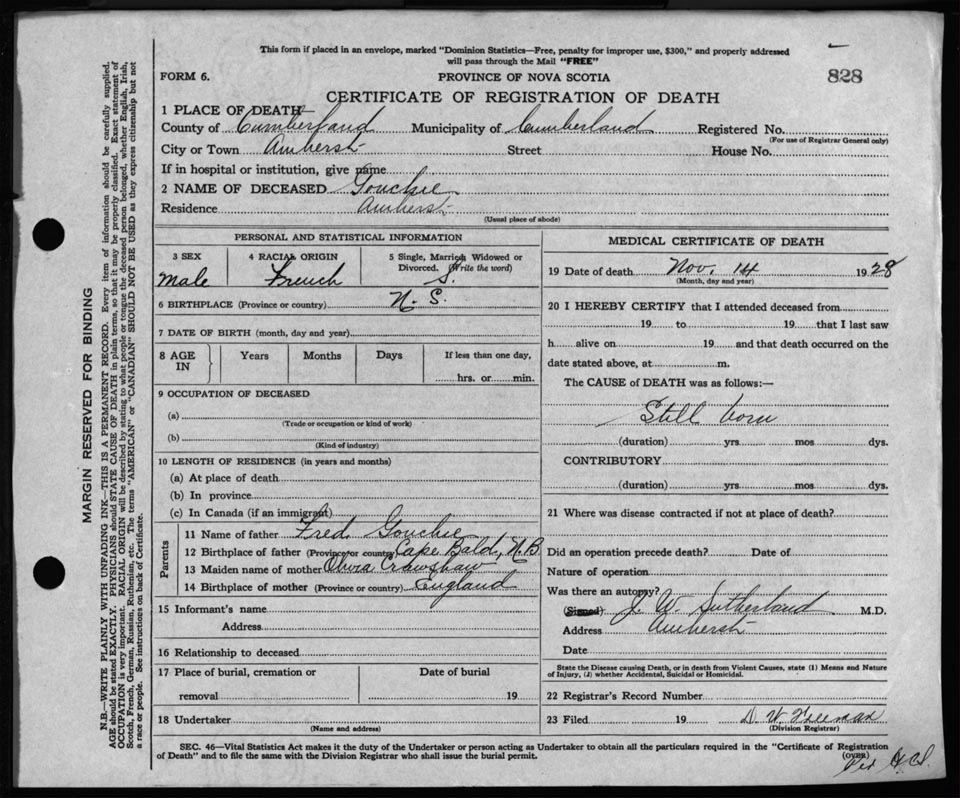 This form if placed in an envelope, marked "Dominion Statistics—Free, penalty for improper use, $300," and properly addressed
will pass through the Mail "FREE"
FORM 6.
PROVINCE OF NOVA SCOTIA
828
CERTIFICATE OF REGISTRATION OF DEATH
1 PLACE OF DEATH
County of Cumberland Municipality of Cumberland Registered No.
(For use of Registrar General only)
City or Town Amherst Street House No.
If in hospital or institution, give name
2 NAME OF DECEASED Gouchie
Residence Amherst
(Usual place of abode)
PERSONAL AND STATISTICAL INFORMATION
3 SEX 4 RACIAL ORIGIN 5 Single, Married, Widowed or
Divorced. (Write the word)
Male French S.
6 BIRTHPLACE (Province or country) N. S.
7 DATE OF BIRTH (month, day and year)
8 AGE Years Months Days If less than one day,
IN hrs. or min.
9 OCCUPATION OF DECEASED
(a)
(Trade or occupation or kind of work)
(b)
(Kind of industry)
10 LENGTH OF RESIDENCE (in years and months)
(a) At place of death
(b) In province
(c) In Canada (if an immigrant)
Parents
11 Name of father Fred Gouchie
12 Birthplace of father (Province or country) Cape Bald, N.B.
13 Maiden name of mother Olivia Crawshaw
14 Birthplace of mother (Province or country) England
15 Informant's name
Address
16 Relationship to deceased
17 Place of burial, cremation or Date of burial
removal 19
18 Undertaker
(Name and address)
MEDICAL CERTIFICATE OF DEATH
19 Date of death Nov. 14 1928
(Month, day and year)
20 I HEREBY CERTIFY that I attended deceased from
19 to 19 that I last saw
h alive on 19 and that death occurred on the
date stated above, at m.
The CAUSE of DEATH was as follows:—
Still born
(duration) yrs. mos dys.
CONTRIBUTORY
(duration) yrs mos dys.
21 Where was disease contracted if not at place of death?
Did an operation precede death? Date of
Nature of operation
Was there an autopsy?
(Signed) J. W. Sutherland M.D.
Address Amherst
Date
State the Disease causing Death, or in death from Violent Causes, state (1) Means and Nature
of Injury, (2) whether Accidental, Suicidal or Homicidal.
22 Registrar's Record Number
23 Filed 19 D. W. Freeman
(Division Registrar)
SEC. 46—Vital Statistics Act makes it the duty of the Undertaker or person acting as Undertaker to obtain all the particulars required in the "Certificate of Registration
of Death" and to file the same with the Division Registrar who shall issue the burial permit.
(OVER)
Per
MARGIN RESERVED FOR BINDING
N.B.—WRITE PLAINLY WITH UNFADING INK—THIS IS A PERMANENT RECORD. Every item of information should be carefully supplied.
AGE should be stated EXACTLY. PHYSICIANS should STATE CAUSE OF DEATH in plain terms, so that it may be properly classified. Exact statement of
OCCUPATION is very important. RACIAL ORIGIN will be described by stating to what people or tongue the deceased person belonged, whether English, Irish,
Scotch, French, German, Russian, Ruthenian, etc. The terms "AMERICAN" or "CANADIAN" SHOULD NOT BE USED as they express citizenship but not
a race or people. See instructions on back of Certificate.